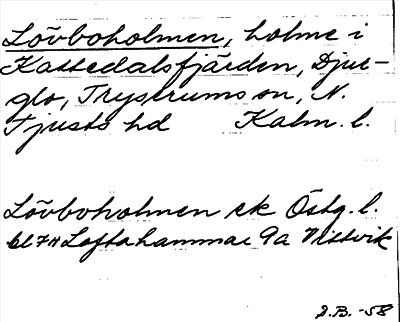 Lövboholmen, holme i
Kattedalsfjärden, Djur-
glo, Tryserums sn, N.
Tjusts hd Kalm. l.
Lövboholmen ek Östg. l.
bl 7H Loftahammar 9a Vittvik
J.B. -58